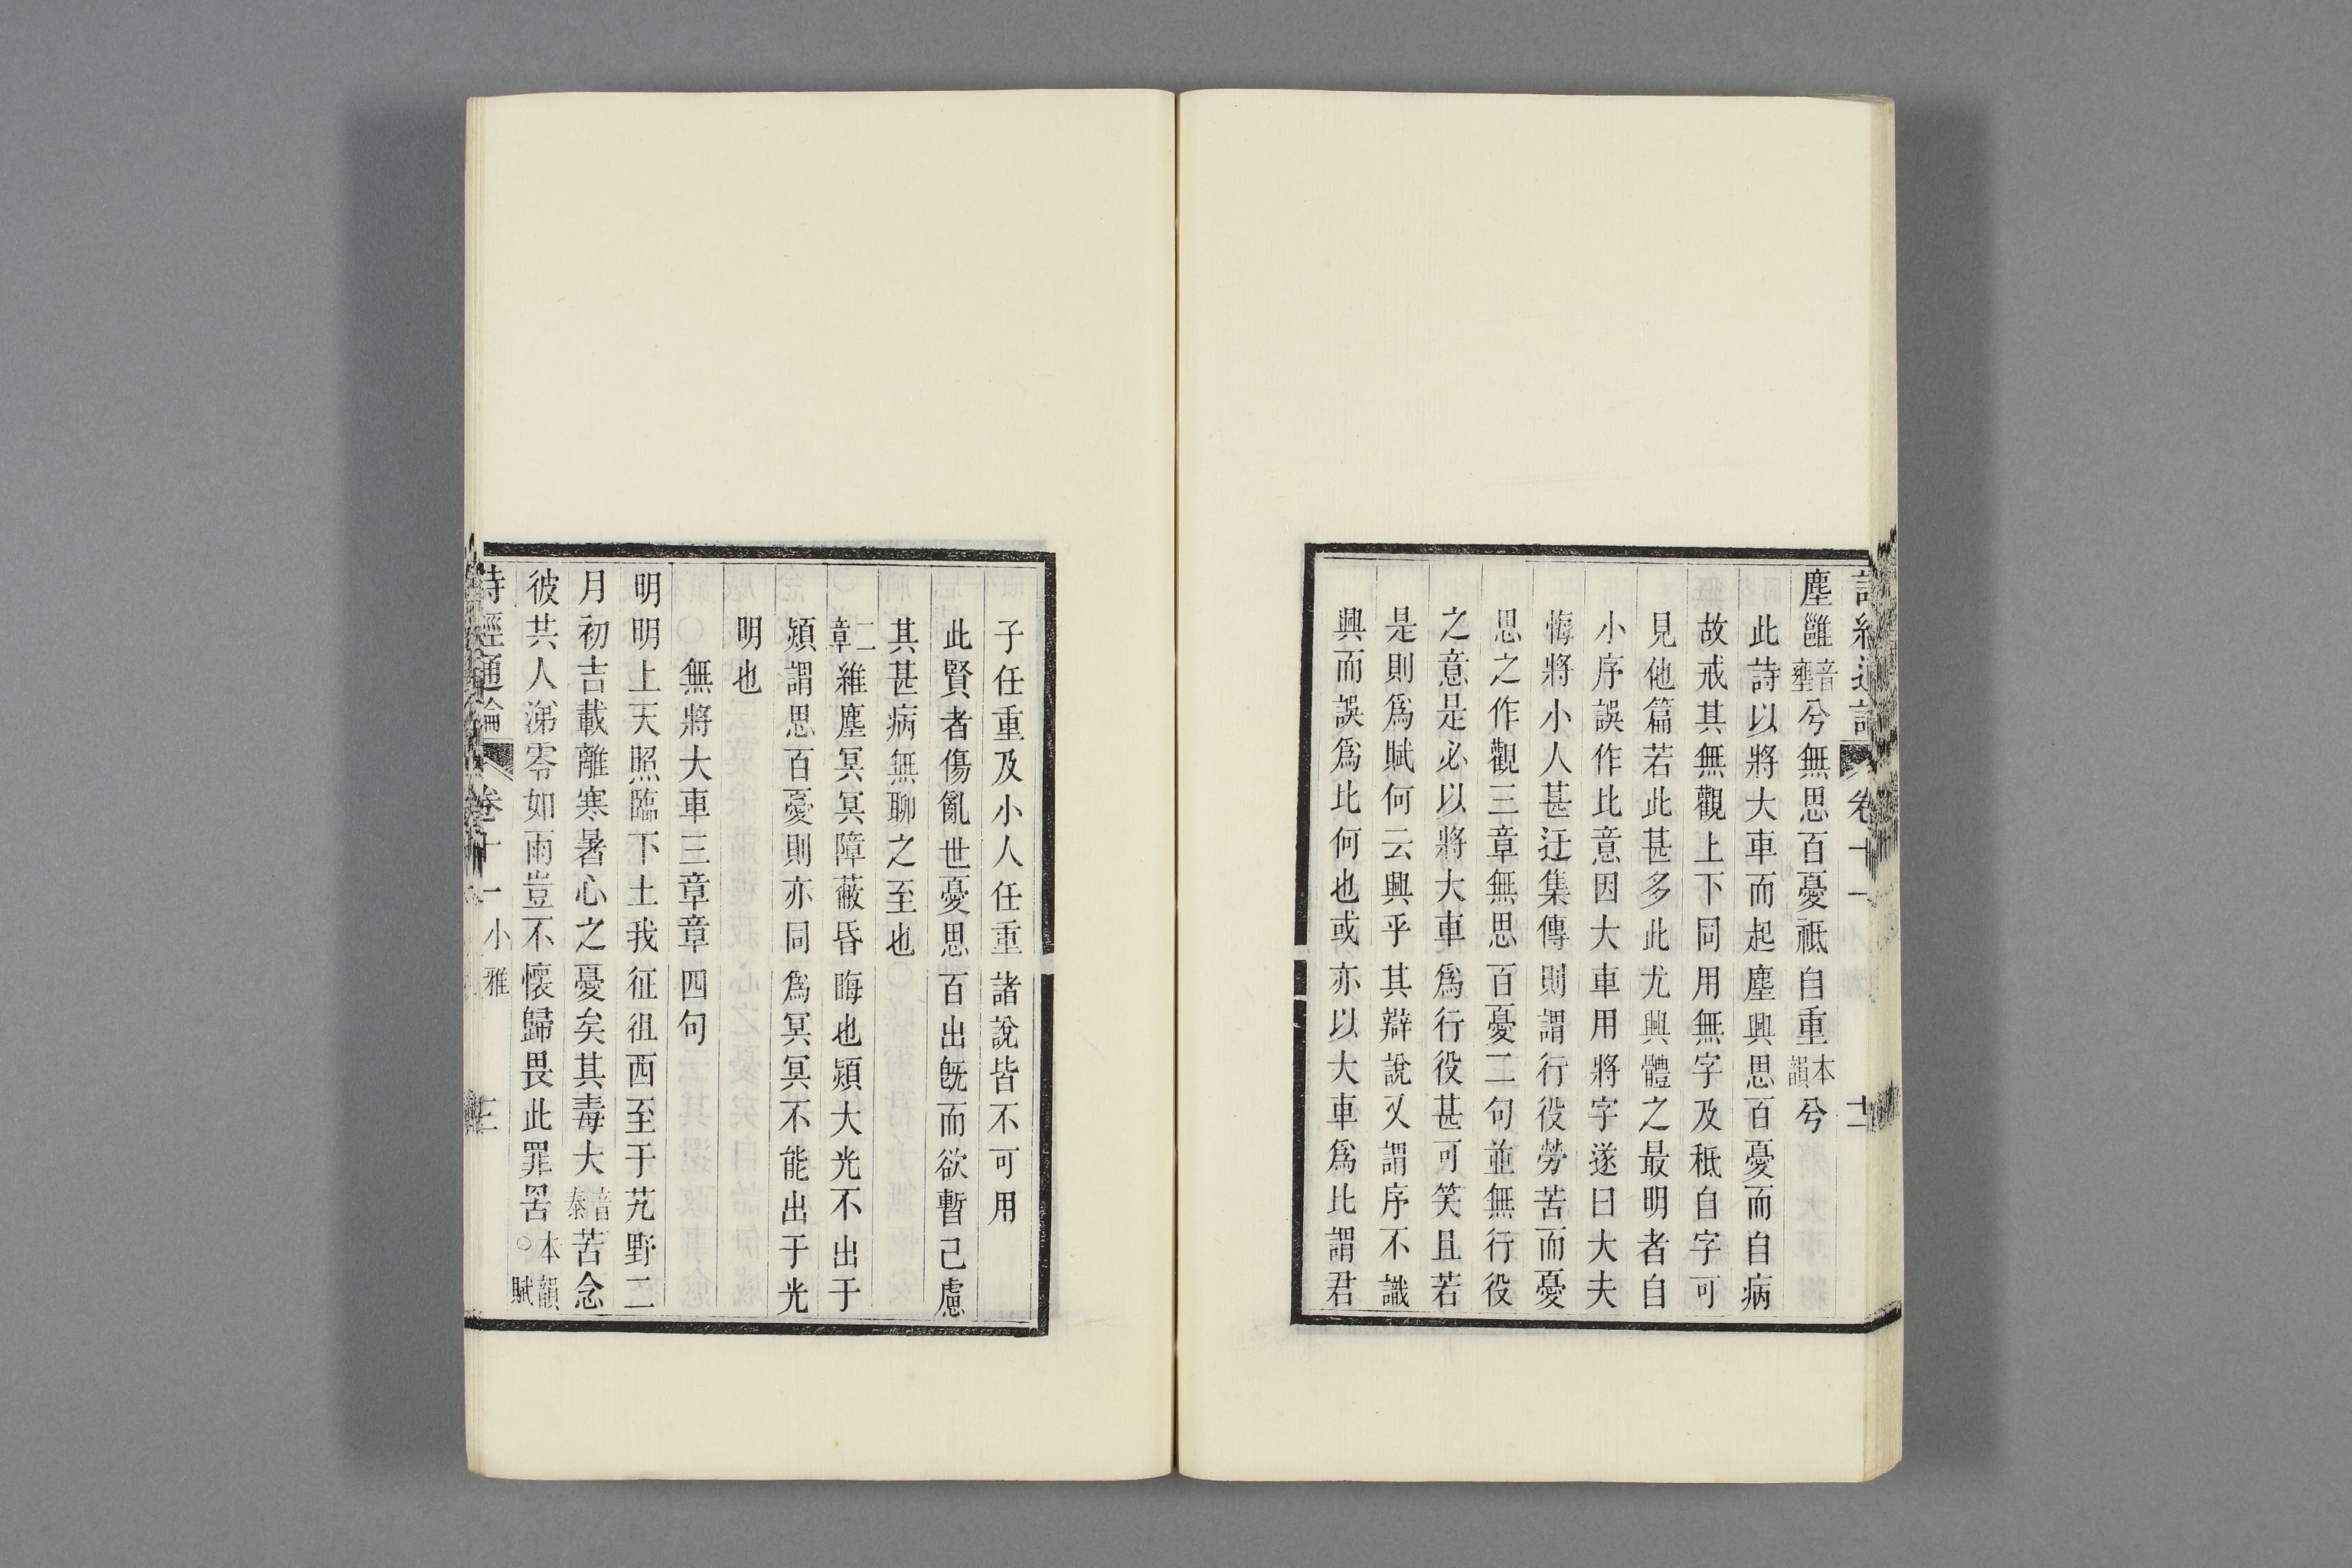 塵雝音壅兮無思百憂祗自重本韻兮
此詩以將大車而起塵興思百憂而自病
故戒其無觀上下同用無字及秪自字可
見他篇若此甚多此尤興體之最明者自
小序誤作比意因大車用將字遂曰大夫
悔將小人甚迂集傳則謂行役勞苦而憂
思之作觀三章無思百憂二句並無行役
之意是必以將大車爲行役甚可笑且若
是則爲賦何云興乎其辯說又謂序不識
興而誤爲比何也或亦以大車爲比謂君
子任重及小人任重諸說皆不可用
此賢者傷亂世憂思百出既而欲暫己慮
其甚病無聊之至也
二章維塵冥冥障蔽昏晦也熲大光不出于
熲謂思百憂則亦同爲冥冥不能出于光
明也
無將大車三章章四句
明明上天照臨下土我征徂西至于艽野二
月初吉載離寒暑心之憂矣其毒大音泰苦念
彼共人涕零如雨豈不懷歸畏此罪罟本韻○賦
詩經通論 卷十一 小雅 三